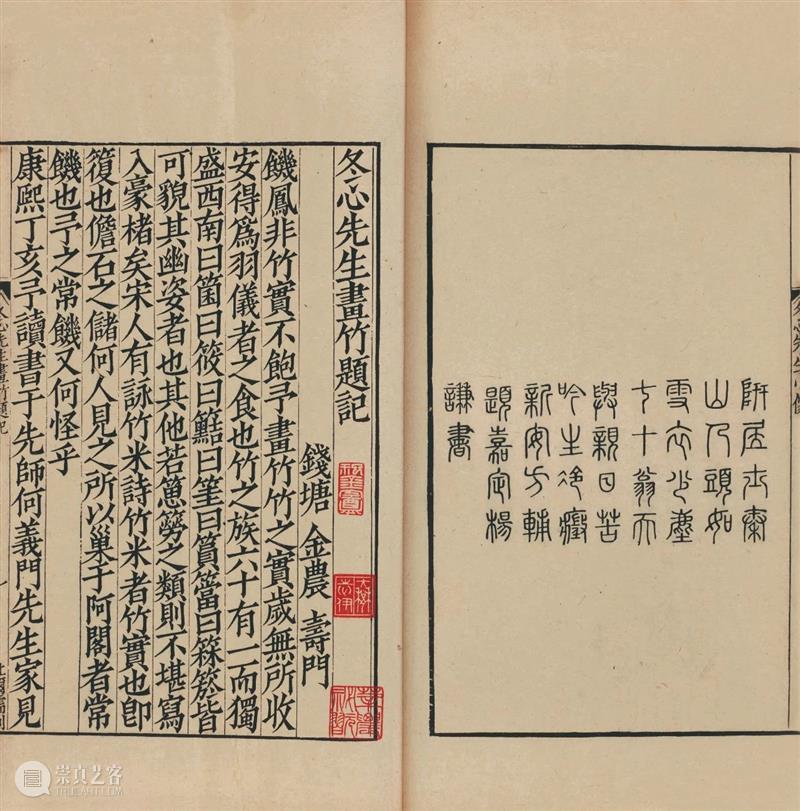 居士
山乃頭如
雪衣少塵
七十翁而
與親曰苦
吟生冷癯
新安方輔
題嘉定楊
謙書
冬心先生畫竹題記
錢塘 金農 壽門
饑鳳非竹實不飽予畫竹竹之實歲無所收
安得爲羽儀者之食也竹之族六十有一而獨
盛西南曰箘曰筊曰曰筀曰篔簹曰箖箊皆
可貌其幽姿者也其他若簩之類則不堪寫
入豪楮矣宋人有詠竹米詩竹米者竹實也卽
也儋石之儲何人見之所以巢于阿閣者常
饑也予之常饑又何怪乎
康熙丁亥予讀書于先師何義門先生家見
冬心先生畫竹題記
崇真艺客